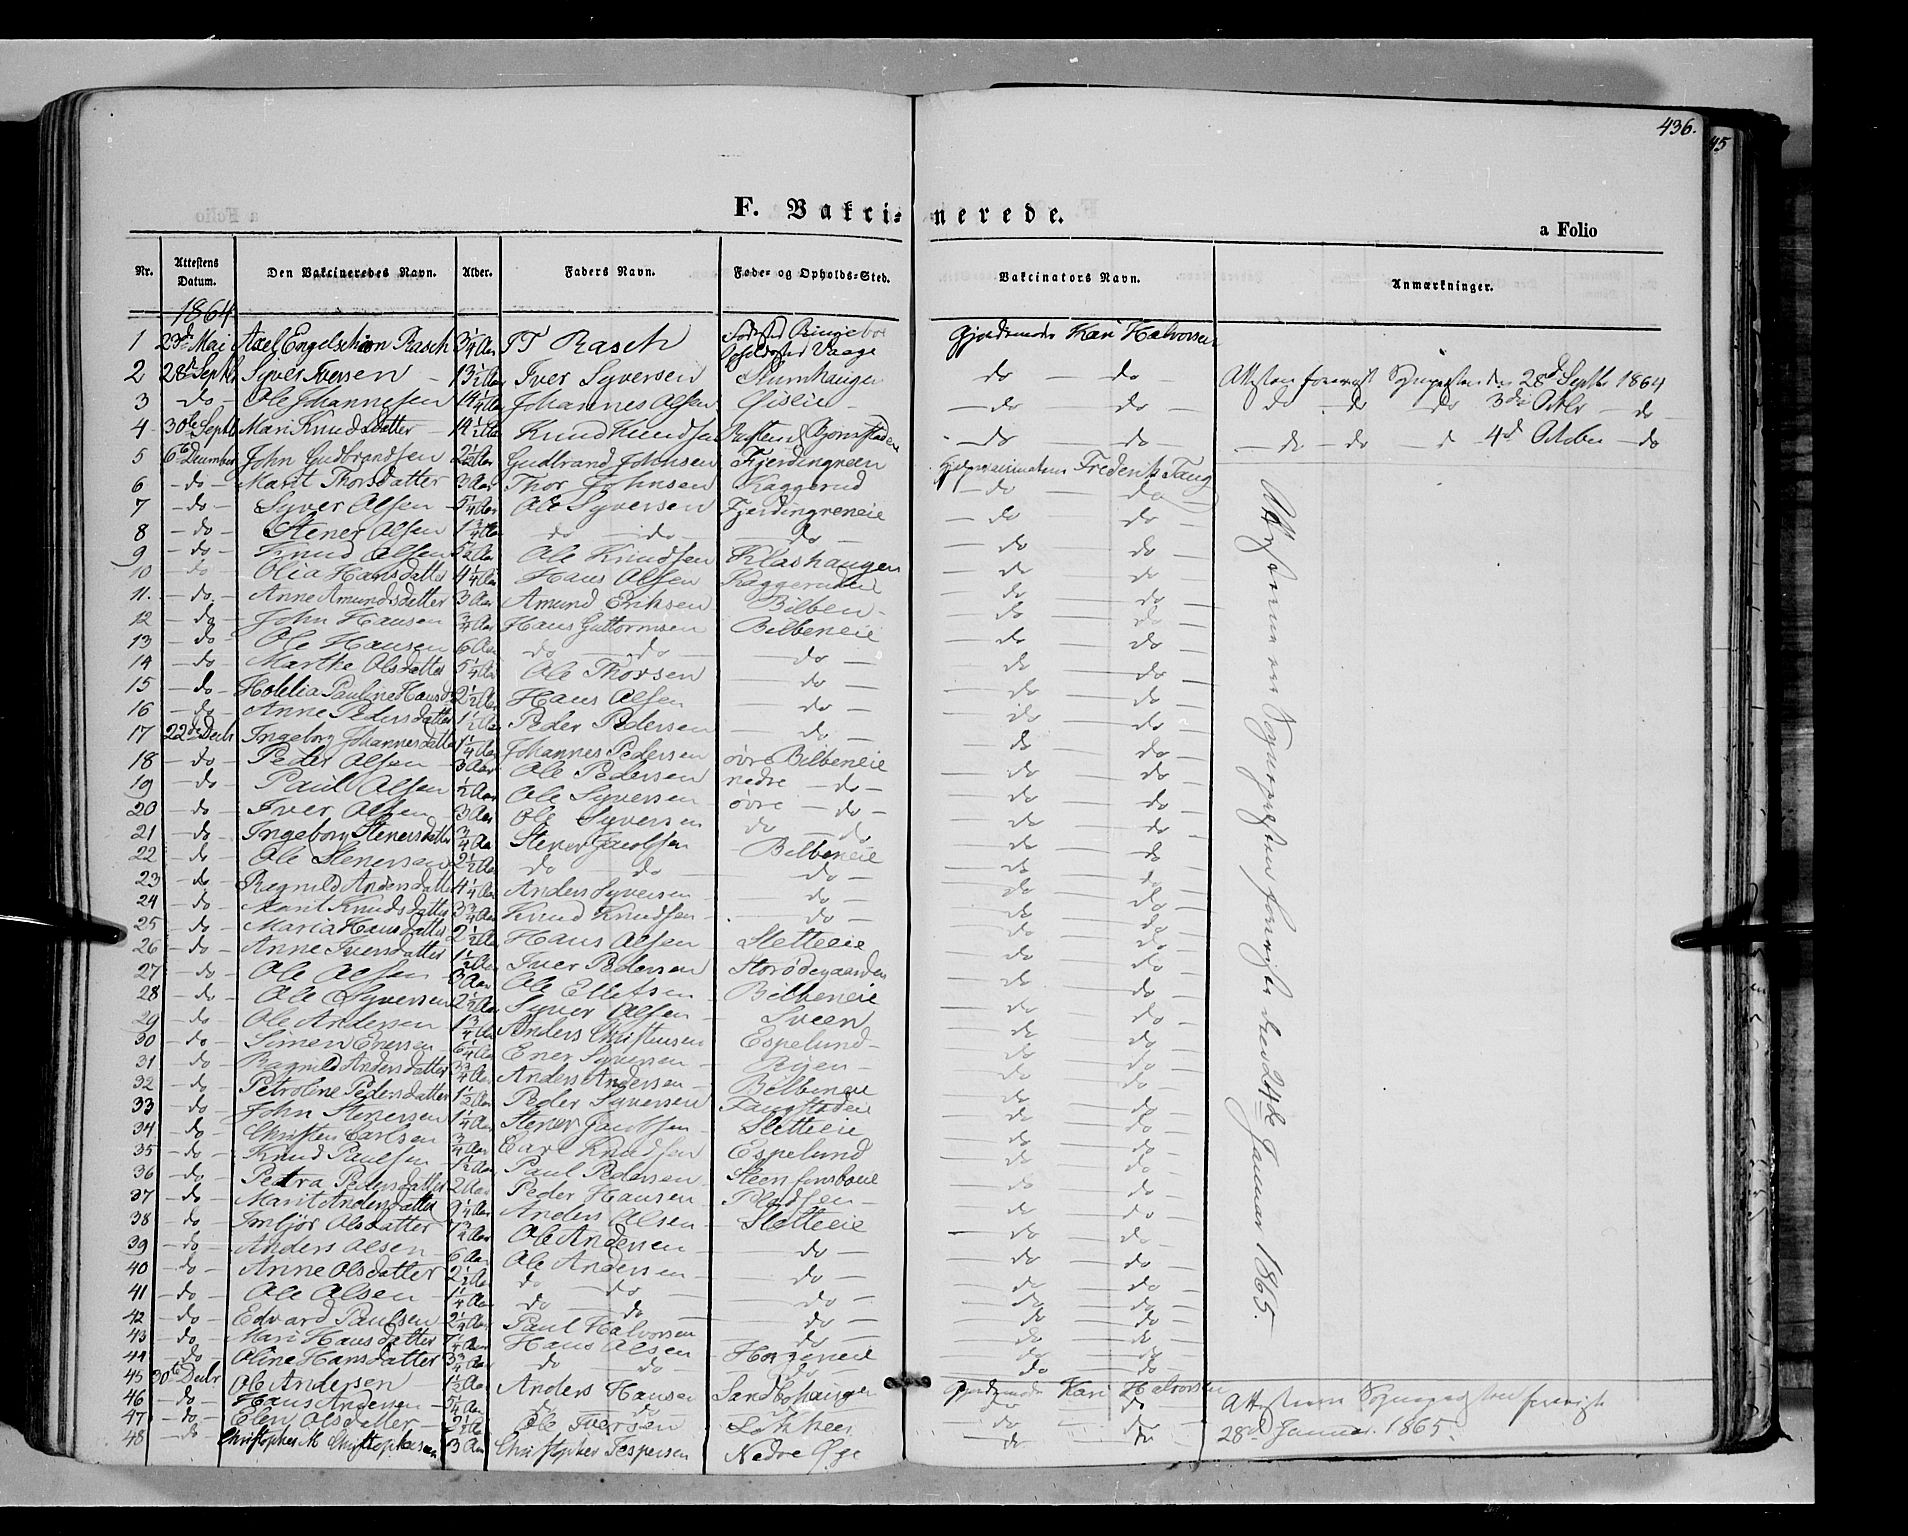 436.
45
F. Vakci-nerede.
a Folio
Nr. Attestens Datum. Den Vakcineredes Navn. Alder. Faders Navn. Føde- og Opholds-Sted. Vakcinators Navn. Anmærkninger.
1864
1 23de Mai Axel Engelschiøn Rasch 3 1/4 Aar TT Rasch Fødsted Ringeboe Opholdssted Vaage Gjordemoder Kari Halvorsen
2 28de Septbr Syver Iversen 13 1/2 Aar Iver Syversen Stumhaugen do do Attesten foreviist Sognepresten den 28de Septbr 1864
3 do Ole Johannesen 14 1/4 Aar Johannes Olsen Øislie do do do do do 3die Octbr do
4 30te Septbr Mari Knudsdatter 14 1/2 Aar Knud Knudsen Bjørnstaden do do do do d 4de October do
5 6te December John Gudbrandsen 2 1/2 Aar Gudbrand Johnsen Fjerdingreen Frederik Taug
6 do Marit Thorsdatter 3 Aar Thor Johnsen Kaggerud do do
7 do Syver Olsen 5 1/4 Aar Ole Syversen Fjerdingreneie do do
8 do Stener Olsen 1 3/4 Aar do do do do do
9 do Knud Olsen 5 1/2 Aar Ole Knudsen Klashaugen do do
10 do Olia Hansdatter 4 1/4 Aar Hans Olsen Kaggerud do do
11. do Anne Amundsdatter 3 Aar Amund Eriksen Bilben do do
12 do John Hansen 3/4 Aar Hans Guttormsen Bilbeneie do do
13 do Ole Hansen 6 Aar do do do do do
14 do Marthe Olsdatter 5 1/4 Aar Ole Thorsen do do do
15 do Pauline Hansd 2 1/2 Aar Hans Olsen do do do
16 do Anne Pedersdatter 1 1/2 Aar Peder Pedersen do do do
17 22de Decbr Ingeborg Johannesdatter 1 1/4 Aar Johannes Pedersen øvre Bilbeneie do do
18 do Peder Olsen 3 Aar Ole Pedersen nedre do do do
19 do Paul Olsen 1/2 Aar Ole Syversen øvre do do do
20 do Iver Olsen 3 Aar Ole Syversen do do do do
21 do Ingeborg Stenersdatter 3/4 Aar Stener Jacobsen Bilbeneie do do
22 do Ole Stenersen 2 1/2 Aar do do do do do
23 do Ragnild Andersdatter 4 1/4 Aar Anders Syversen do do do
24 do Marit Knudsdatter 3 3/4 Aar Knud Knudsen do do do
25 do Maria Hansdatter 2 1/2 Aar Hans Olsen Sletteeie do do
26 do Anne Iversdatter 1 1/2 Aar Iver Pedersen Storødegaarden do do
27 do Ole Olsen 3 Aar Ole Ellefsen Bilbeneie do do
28 do Ole Syversen 2 1/2 Aar Syver Olsen Sveen do do
29 do Ole Andersen 1 3/4 Aar Anders Christensen Espelund do do
30 do Simen Enersen 6 1/4 Aar Ener Syversen do do
31 do Ragnild Andersdatter 3 3/4 Aar Anders Andersen Bilbeneie do do
32 do Petroline Pedersdatter 1 1/2 Aar Peder Syversen Faugstadeie do do
33 do John Stenersen 1 1/4 Aar Stener Jacobsen Sletteeie do do
34 do Christen Carlsen 3/4 Aar Carl Knudsen Espelund do do
35 do Knud Paulsen 1 1/2 Aar Paul Pedersen do do
36 do Petra Pedersdatter 2 Aar Peder Hansen Pladsen do do
37 do Marit Andersdatter 9 1/4 Aar Anders Olsen Sletteeie do do
38 do Imbjør Olsdatter 1 3/4 Aar Ole Andersen do do do
39 do Anders Olsen 6 Aar Ole Andersen do do do
40 do Anne Olsdatter 2 1/2 Aar do do do do do
41 do Ole Olsen 1 1/4 Aar do do do do do
42 do Edvard Paulsen 2 1/4 Aar Paul Halvorsen do do do
43 do Mari Hansdatter Aar Hans Olsen do do
44 do Oline Hansdatter 3 3/4 Aar do do do do do
45 30te Decbr Ole Andersen 1 1/2 Aar Anders Hansen Sandbohaugen Gjordemoder Kari Halvorsen
46 do Hans Andersen 5 1/4 Aar do do do do
47 do Elen Olsdatter 2 1/2 Aar Ole Iversen Løkken do do
48 do Christopher M Christophersen 3 Aar Christopher Jespersen Nedre Øye do do
Attesterne er Sognepresten foreviste den 24de Januar 1865.
Attesterne Sognepresten foreviist
28de Januar. 1865.